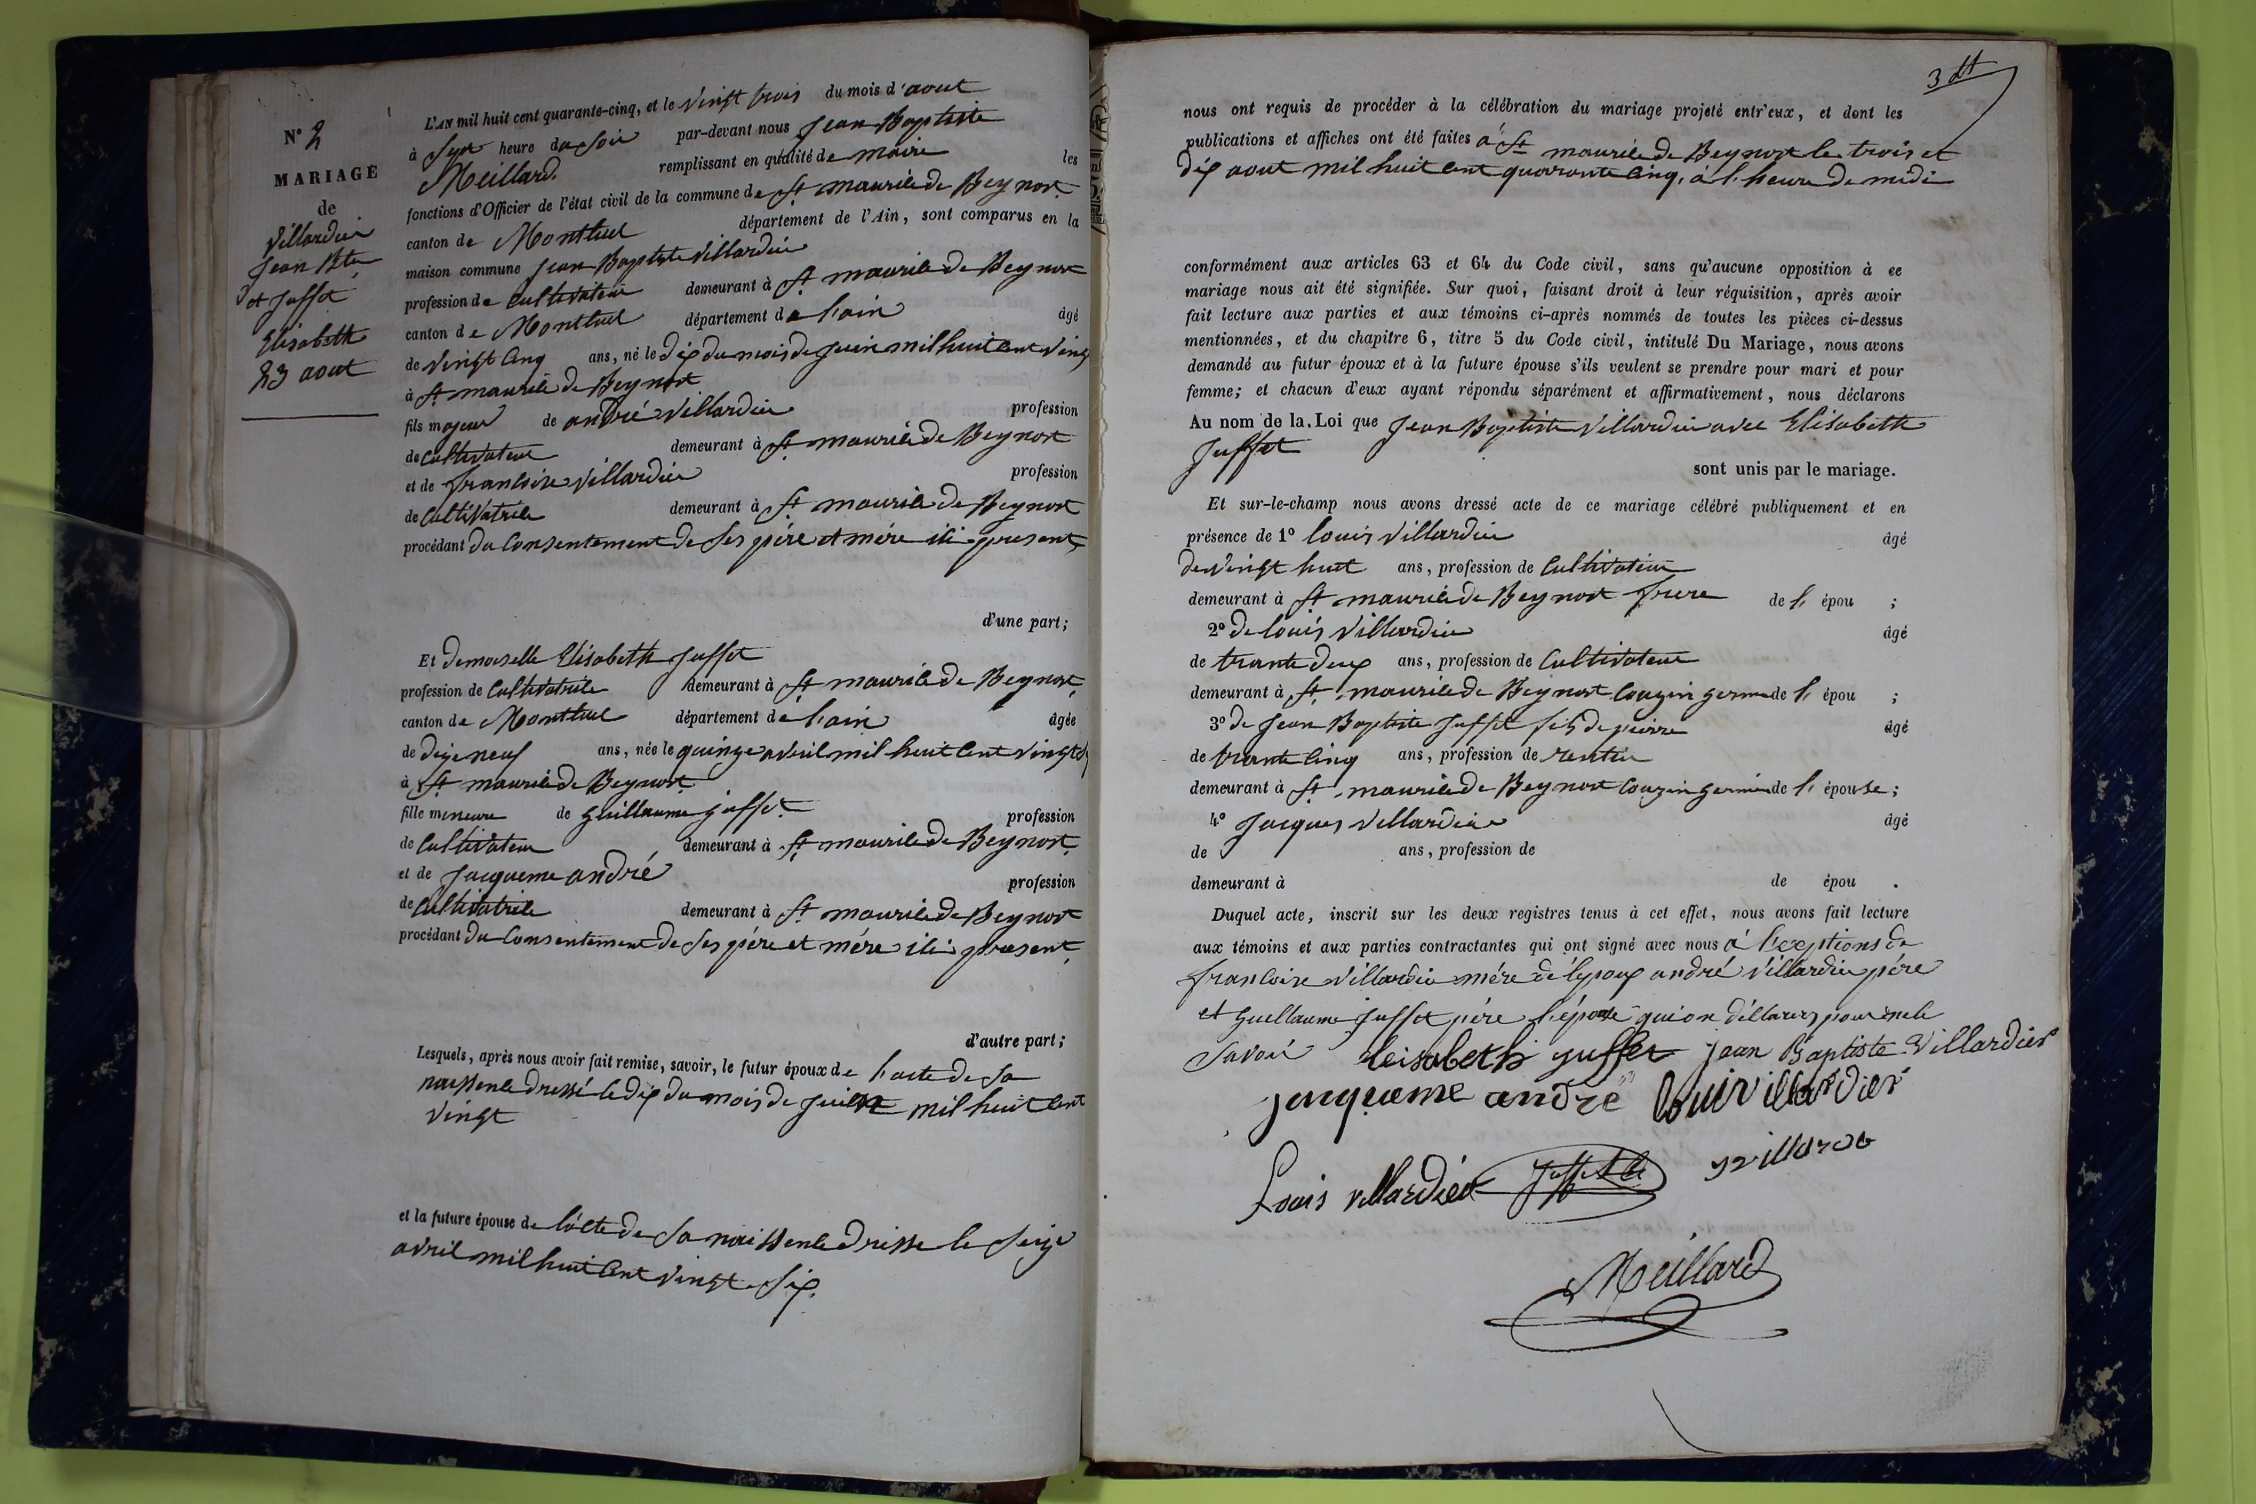 N° 2
MARIAGE
de
Villardier
Jean Bte
et Juffet
Elisabeth
23 aout
L'AN mil huit cent quarante-cinq, et le vingt trois du mois d'aout
à Sept heure du Soir par-devant nous Jean Baptiste
Meillard remplissant en qualité de maire les
fonctions d'Officier de l'état civil de la commune de St maurice de Beynost
canton de Montluel département de l'Ain, sont comparus en la
maison commune Jean Baptiste Villardier
profession de Cultivateur demeurant à St maurice de Beynost
canton de Montluel département de l'ain âgé
de vingt Cinq ans, né le Dix du mois de Juin mil huit Cent vingt
à St maurice de Beynost
fils majeur de andré Villardier profession
de Cultivateur demeurant à St maurice de Beynost
et de francoise Villardier profession
de Cultivatrice demeurant à St maurice de Beynost
procédant du Consentement de Ses père et mére ici present
d'une part;
Et demoiselle Elisabeth Juffet
profession de Cultivatrice demeurant à St maurice de Beynost
canton de Montluel département de l'ain âgée
de Dixe neuf ans, née le quinze avril mil huit Cent vingt
à St maurice de Beynost
fille mineure de Guillaume Juffet profession
de Cultivateur demeurant à St maurice de Beynost
et de Jacqueme andré profession
de Cultivatrice demeurant à St maurice de Beynost
procédant du Consentement de Ses pére et mére ici present
d'autre part;
Lesquels, après nous avoir fait remise, savoir, le futur époux de l'acte de Sa
naissence dressé le dix du mois de Juin mil huit Cent
vingt
et la future épouse de l'acte de Sa naissence drisse le Seize
avril mil huit Cent vingt Six.
3 dt
nous ont requis de procéder à la célébration du mariage projeté entr'eux, et dont les
publications et affiches ont été faites à St maurice de Beynost le trois et
dix aout mil huit Cent quarante Cinq, à l'heure de midi
conformément aux articles 63 et 64 du Code civil, sans qu'aucune opposition à ce
mariage nous ait été signifiée. Sur quoi, faisant droit à leur réquisition, après avoir
fait lecture aux parties et aux témoins ci-après nommés de toutes les pièces ci-dessus
mentionnées, et du chapitre 6, titre 5 du Code civil, intitulé Du Mariage, nous avons
demandé au futur époux et à la future épouse s'ils veulent se prendre pour mari et pour
femme; et chacun d'eux ayant répondu séparément et affirmativement, nous déclarons
Au nom de la Loi que Jean Baptiste Villardier avec Elisabeth
Juffet
sont unis par le mariage.
Et sur-le-champ nous avons dressé acte de ce mariage célébré publiquement et en
présence de 1° louis Villardier âgé
de vingt huit ans, profession de Cultivateur
demeurant à St maurice de Beynost frere de l' épou ;
2° de louis Villardier âgé
de trante deux ans, profession de Cultivateur
demeurant à St maurice de Beynost Couzin germ de l' épou ;
3° de Jean Baptiste Juffet fils de pierre âgé
de trante Cinq ans, profession de rentier
demeurant à St maurice de Beynost Couzin germin de l' épouse;
4° Jacques Villardier âgé
de ans, profession de
demeurant à de épou .
Duquel acte, inscrit sur les deux registres tenus à cet effet, nous avons fait lecture
aux témoins et aux parties contractantes qui ont signé avec nous à l'exeptions de
francoise Villardier mére de l'époux andré Villardier pére
et Guellaume Juffet pére l'épouse qui on déllarer pour ne le
Savoir Eleisabeth juffet Jean Baptiste Villardier
jacqueme andré loui villardier
Louis villardier Juffet
Meillard